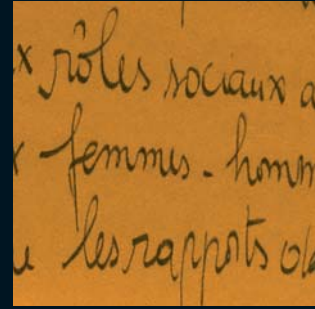 x rôles sociaux a
x femmes - homm
u les rapports de